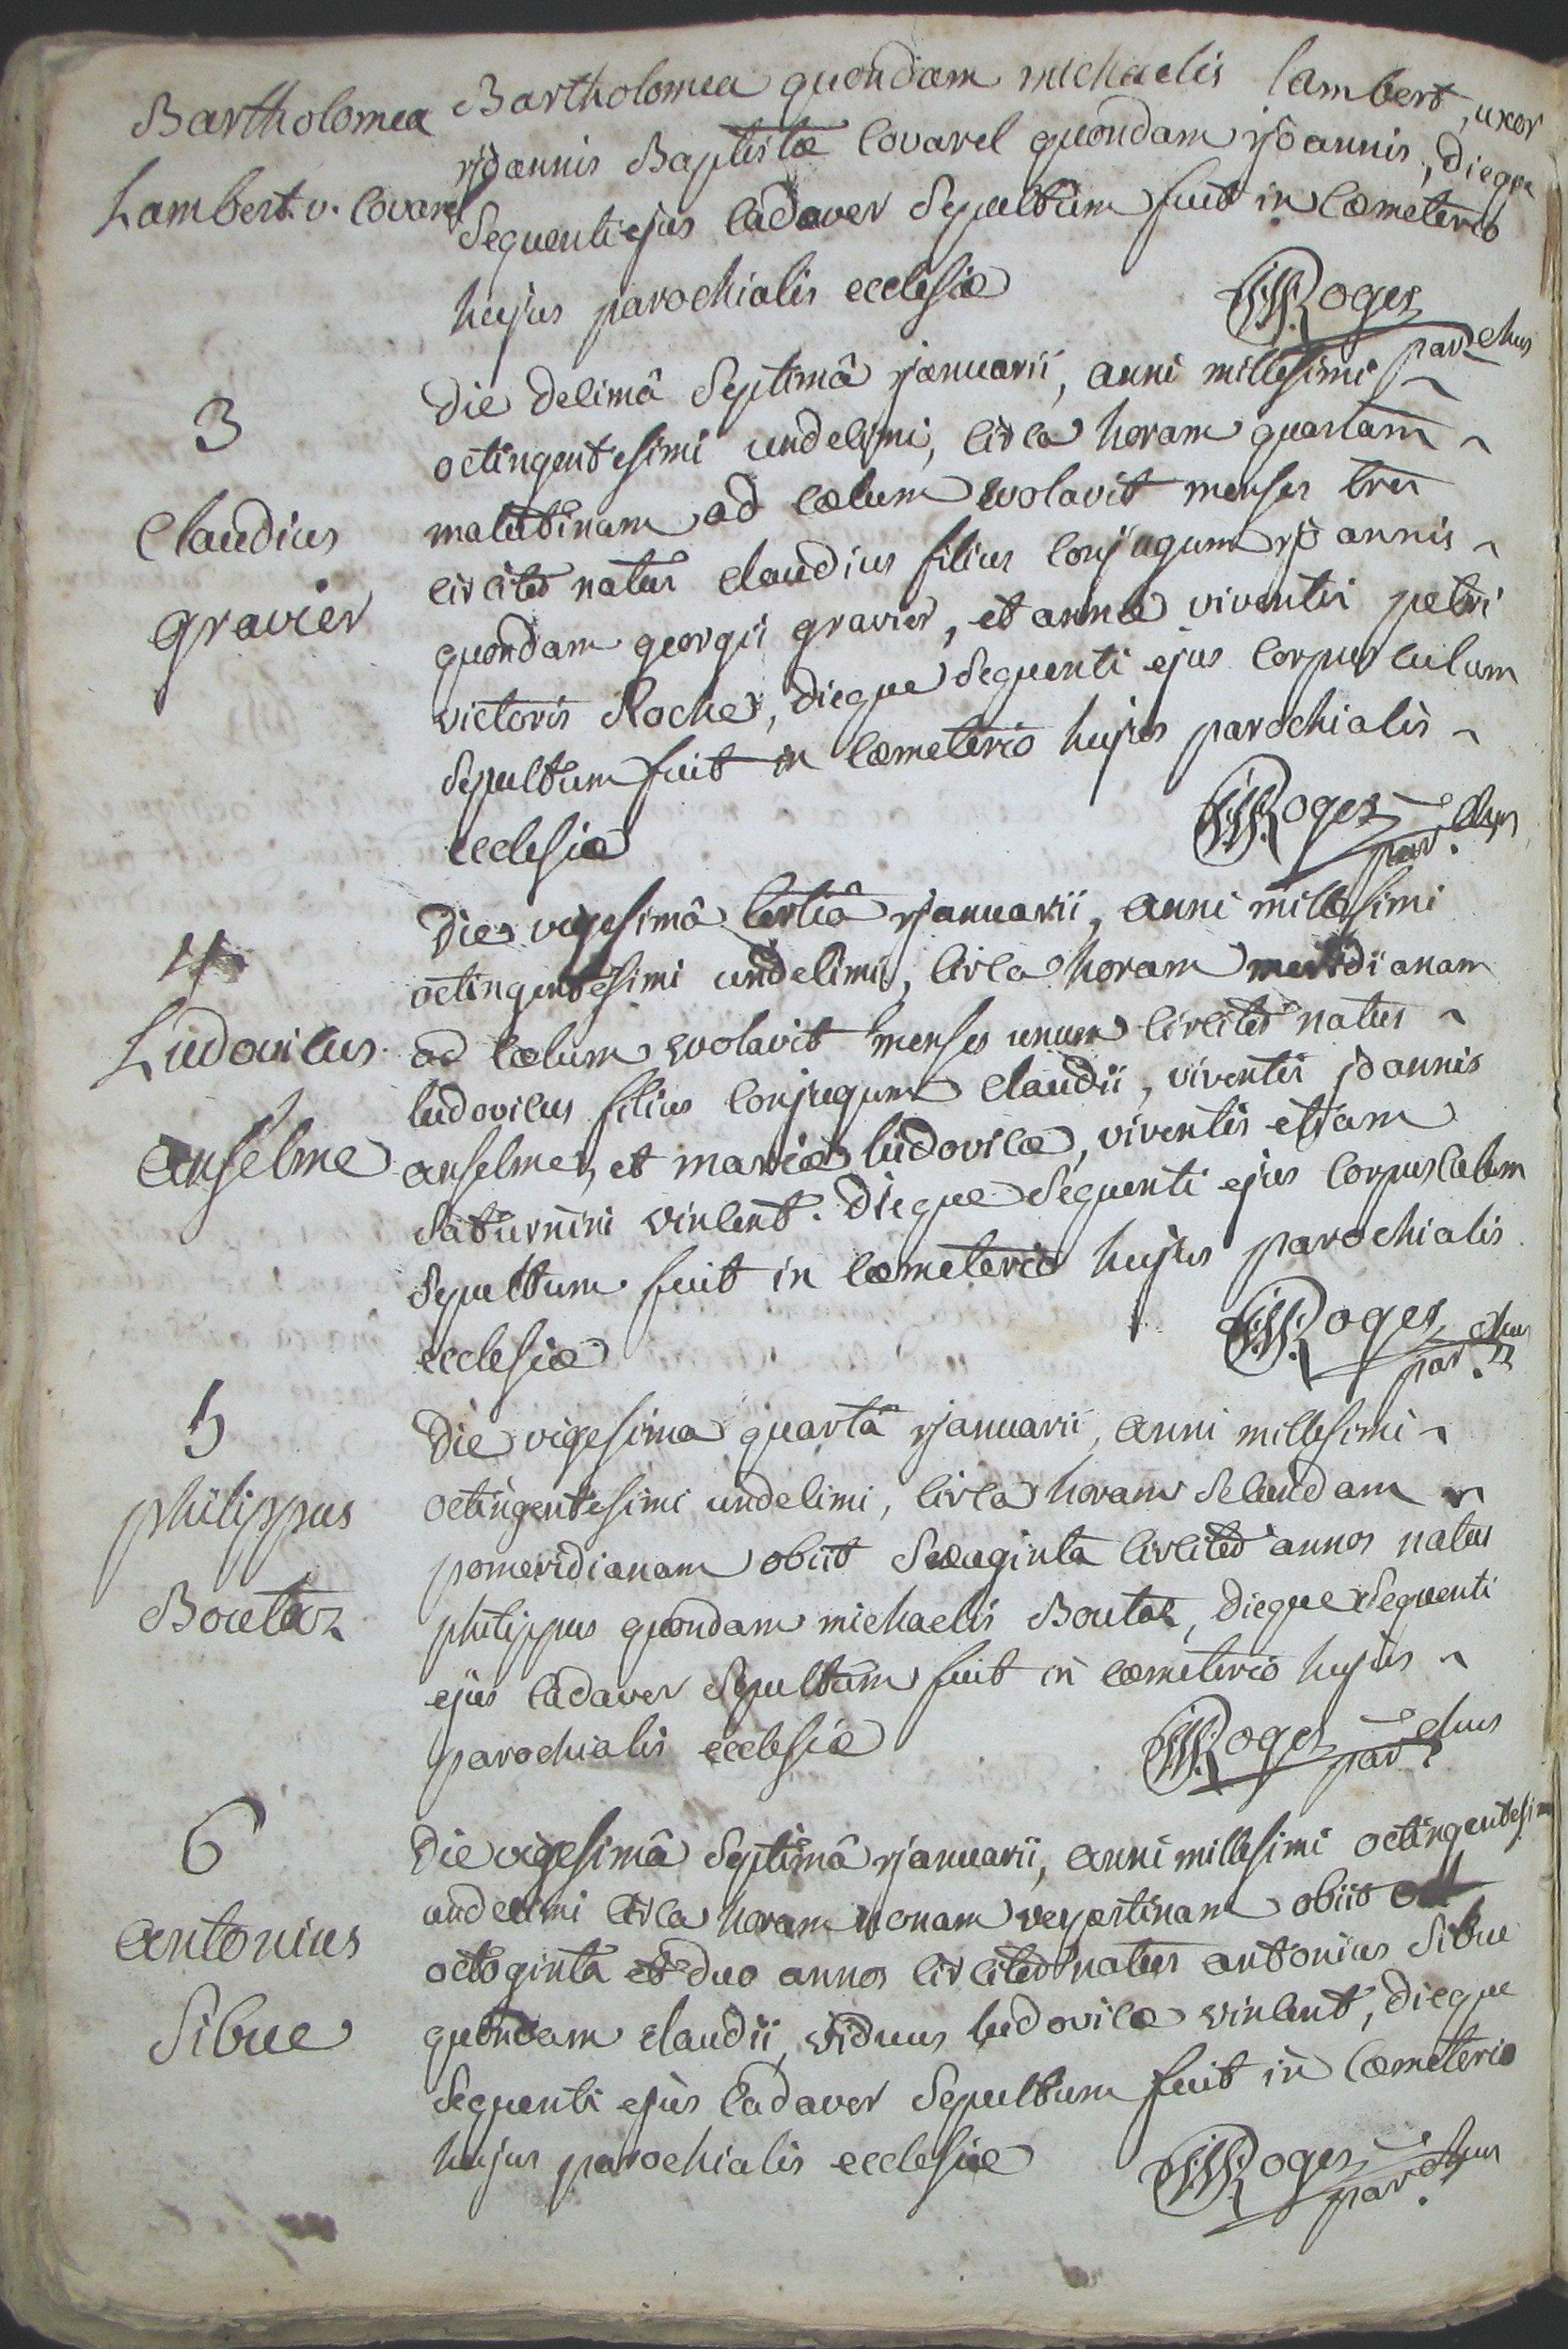 Bartholomea
Lambert. v. Covarel
Bartholomea quondam michaelis lambert, uxor
joannis Baptistæ Covarel quondam joannis, dieque
Sequenti ejus Cadaver Sepultum fuit in Cœmeterio
hujus parochialis ecclesiæ
Roges
parochus
3
Claudius
gravier
Die decimâ Septimâ januarii, anni millesimi
octingentesimi undecimi, circa horam quartam
matutinam ad cœlum evolavit menses tres
circiter natus claudius filius Conjugum joannis
quondam georgii gravier, et annæ viventis petri
victoris Roche, dieque Sequenti ejus Corpusculum
Sepultum fuit in Cœmeterio hujus parochialis
ecclesiæ
Roges
parochus
4
Ludovicus
anselme
Die vigesimâ tertiâ januarii, anni millesimi
octingentesimi undecimi, circa horam meridianam
ad cœlum evolavit menses unum circiter natus
ludovicus filius Conjugum Claudii, viventis joannis
anselme, et mariæ ludovicæ, viventis etiam
Saturnini vincent. Dieque Sequenti ejus Corpusculum
Sepultum fuit in Cœmeterio hujus parochialis
ecclesiæ
Roges
parochus
5
philippus
Boutaz
Die vigesima quartâ januarii, anni millesimi
octingentesimi undecimi, circa horam Secundam
pomeridianam obiit Sexaginta circiter annos natus
philippus quondam michaelis Boutaz, dieque Sequenti
ejus Cadaver Sepultum fuit in cœmeterio hujus
parochialis ecclesiæ
Roges
parochus
6
antonius
Sibue
Die vigesimâ Septimâ januarii, anni millesimi octingentesimi
undecimi circa horam nonam vespertinam obiit
octoginta et duo annos circiter natus antonius Sibue
quondam claudii, viduus ludovicæ vincent, dieque
Sequenti ejus Cadaver Sepultum fuit in Cœmeterio
hujus parochialis ecclesiæ
Roges
parochus